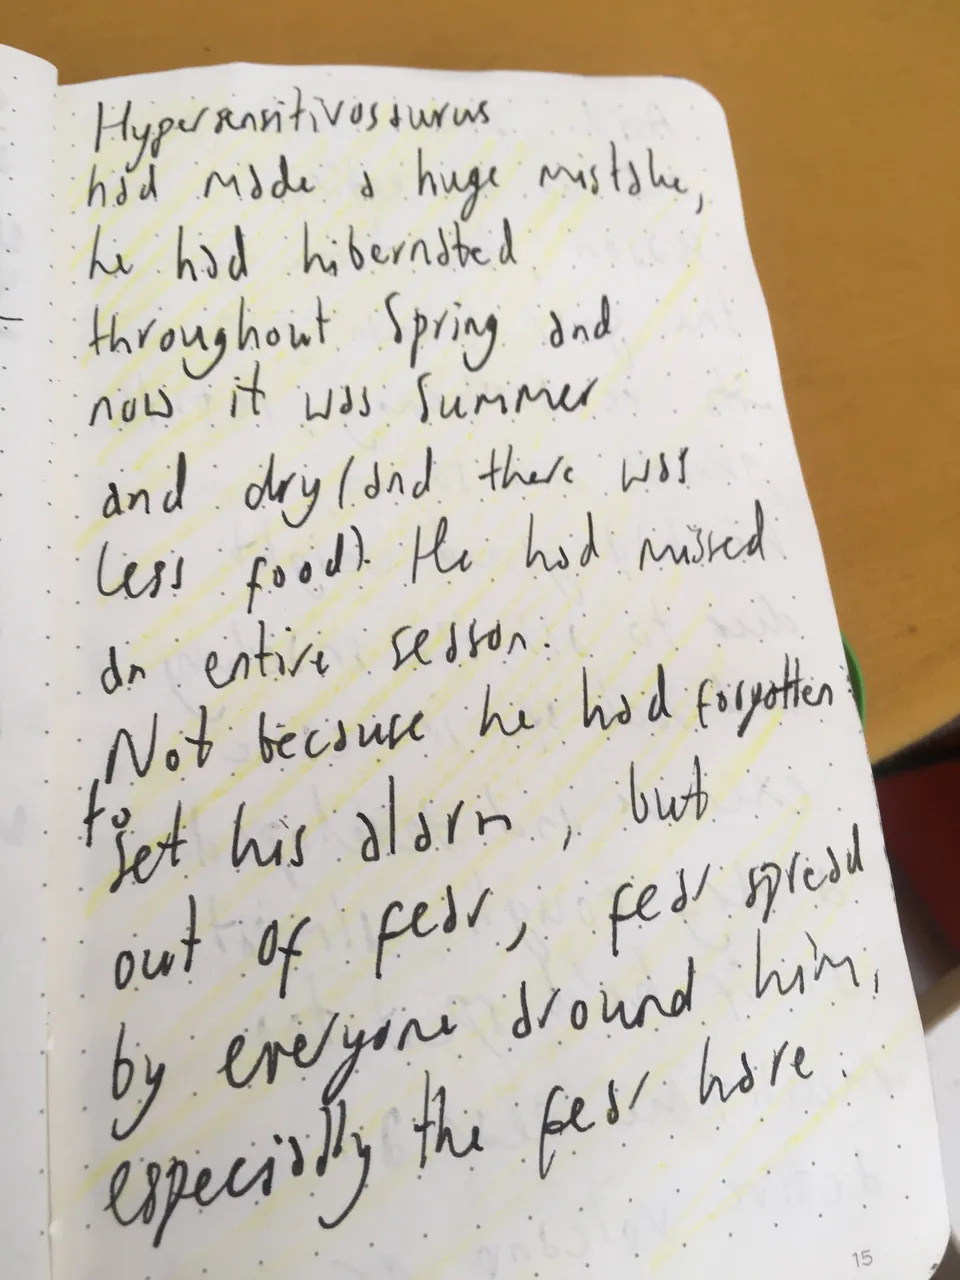 Hypersensitivosaurus
had made a huge mistake,
he had hibernated
throughout Spring and
now it was Summer
and dry (and there was
less food). He had missed
an entire season.
Not because he had forgotten
to
set his alarm, but
out of fear, fear spread
by everyone around him,
especially the fear hare.
15